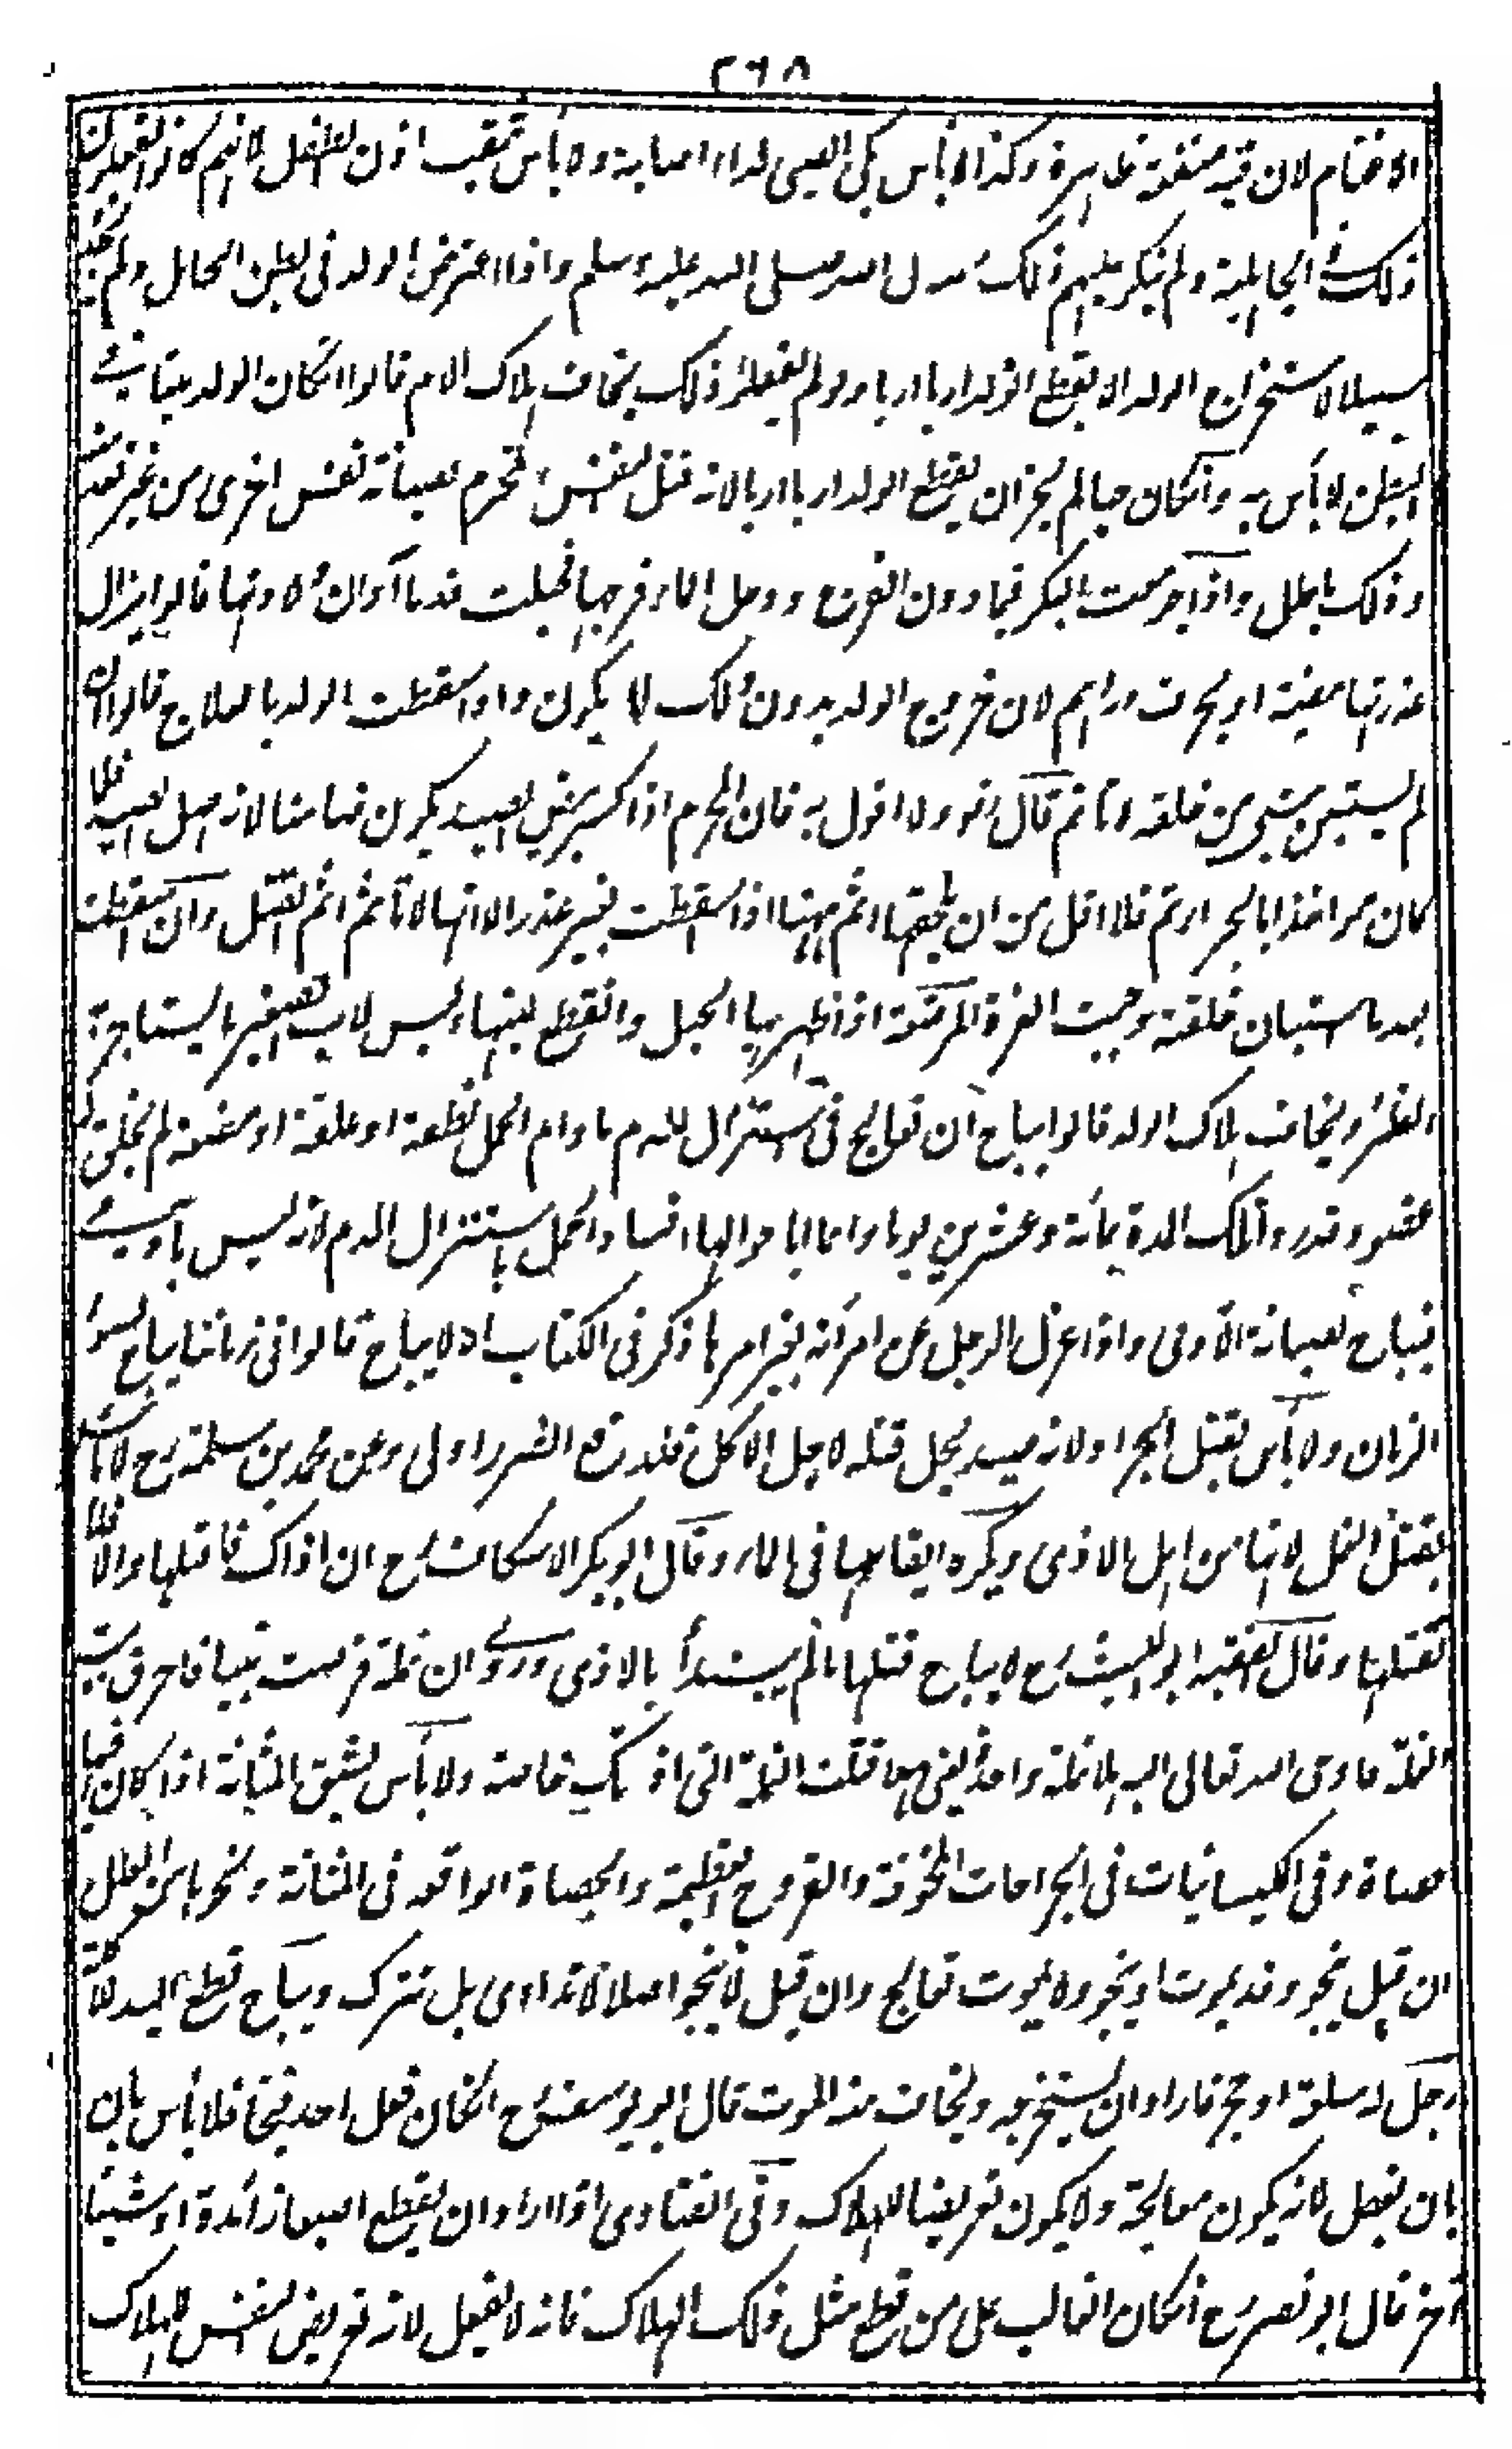 ٣٦٨
الاغنام لان فيه منفعة ظاهرة وكذا لا بأس بكى الصبى لداء اصابه ولا بأس بثقب اذن الطفل لانهم كانوا يفعلون
ذلك فى الجاهلية ولم ينكر عليهم ذلك رسول الله صلى الله عليه وسلم واذا اعترض الولد فى بطن الحامل ولم يجدوا
سبيلا لاستخراج الولد الا بقطع الولد اربا اربا ولو لم يفعلوا ذلك يخاف هلاك الام قالوا انكان الولد ميتا فى
البطن لا بأس به وانكان حيا لم يجز ان يقطع الولد اربا اربا لانه قتل النفس المحرم لصيانة نفس اخرى من غير تعد منه
وذلك باطل واذا جومعت البكر فيما دون الفرج ودخل الماء فرجها فحبلت فدنا اوان ولادتها قالوا يزال
عذرتها ببيضة او بحرف درهم لان خروج الولد بدون ذلك لا يكون واذا اسقطت الولد بالعلاج قالوا ان
لم يستبن شئ من خلقه لا تأثم قال رضه ولا اقول به فان المحرم اذا كسر بيض الصيد يكون ضامنا لانه اصل الصيد فلما
كان مؤاخذا بالجزاء ثم فلا اقل من ان يلحقها اثم ههنا اذا اسقطت بغير عذر الا انها لا تأثم اثم القتل وان اسقطت
بعد ما استبان خلقه وجبت الغرة المرضعة اذا ظهر بها الحبل وانقطع لبنها وليس لاب الصغير ما يستاجر به
الظئر ويخاف هلاك الولد قالوا يباح ان تعالج فى استنزال الدم ما دام الحمل نطفة او علقة او مضغة لم يخلق له
عضو وقدروا تلك المدة بمائة وعشرين يوما وانما اباحوا لها افساد الحمل باستنزال الدم لانه ليس بآدمى
فيباح لصيانة الآدمى واذا عزل الرجل عن امرأته بغير امرها ذكر فى الكتاب انه لا يباح قالوا فى زماننا يباح لسوء
الزمان ولا بأس بقتل الجراد لانه صيد يحل قتله لاجل الاكل فلدفع الضرر اولى وعن محمد بن سلمة رح لا بأس
بقتل النمل لانها من اهل الاذى ويكره القاؤها فى الماء وقال ابو بكر الاسكاف رح ان اذاك فاقتلها والا فلا
تقتلها وقال الفقيه ابو الليث رح لا يباح قتلها ما لم يبتدأ بالاذى وروى ان نملة قرصت نبيا فاحرق بيت
النملة فاوحى الله تعالى اليه هلا نملة واحدة يعنى هلا قتلت النملة التى اذتك خاصة ولا بأس بشق المثانة اذا كان فيها
حصاة وفى الكيسانيات فى الجراحات المخوفة والقروح العظيمة والحصاة الواقعة فى المثانة ونحوها من العلل
ان قيل ينجو وقد يموت او ينجو ولا يموت تعالج وان قيل لا ينجو اصلا لا تداوى بل تترك ويباح قطع اليد للآكلة
رجل له سلعة او حجر فاراد ان يستخرجه ويخاف منه الموت قال ابو يوسف رح انكان فعل احد فنجا فلا بأس بان
بان يفعل لانه يكون معالجة ولا يكون تعريضا للهلاك وفى الفتاوى اذا اراد ان يقطع اصبعا زائدة او شيئا
آخر قال ابو نصر رح انكان الغالب على من قطع مثل ذلك الهلاك فانه لا يفعل لانه تعريض النفس للهلاك